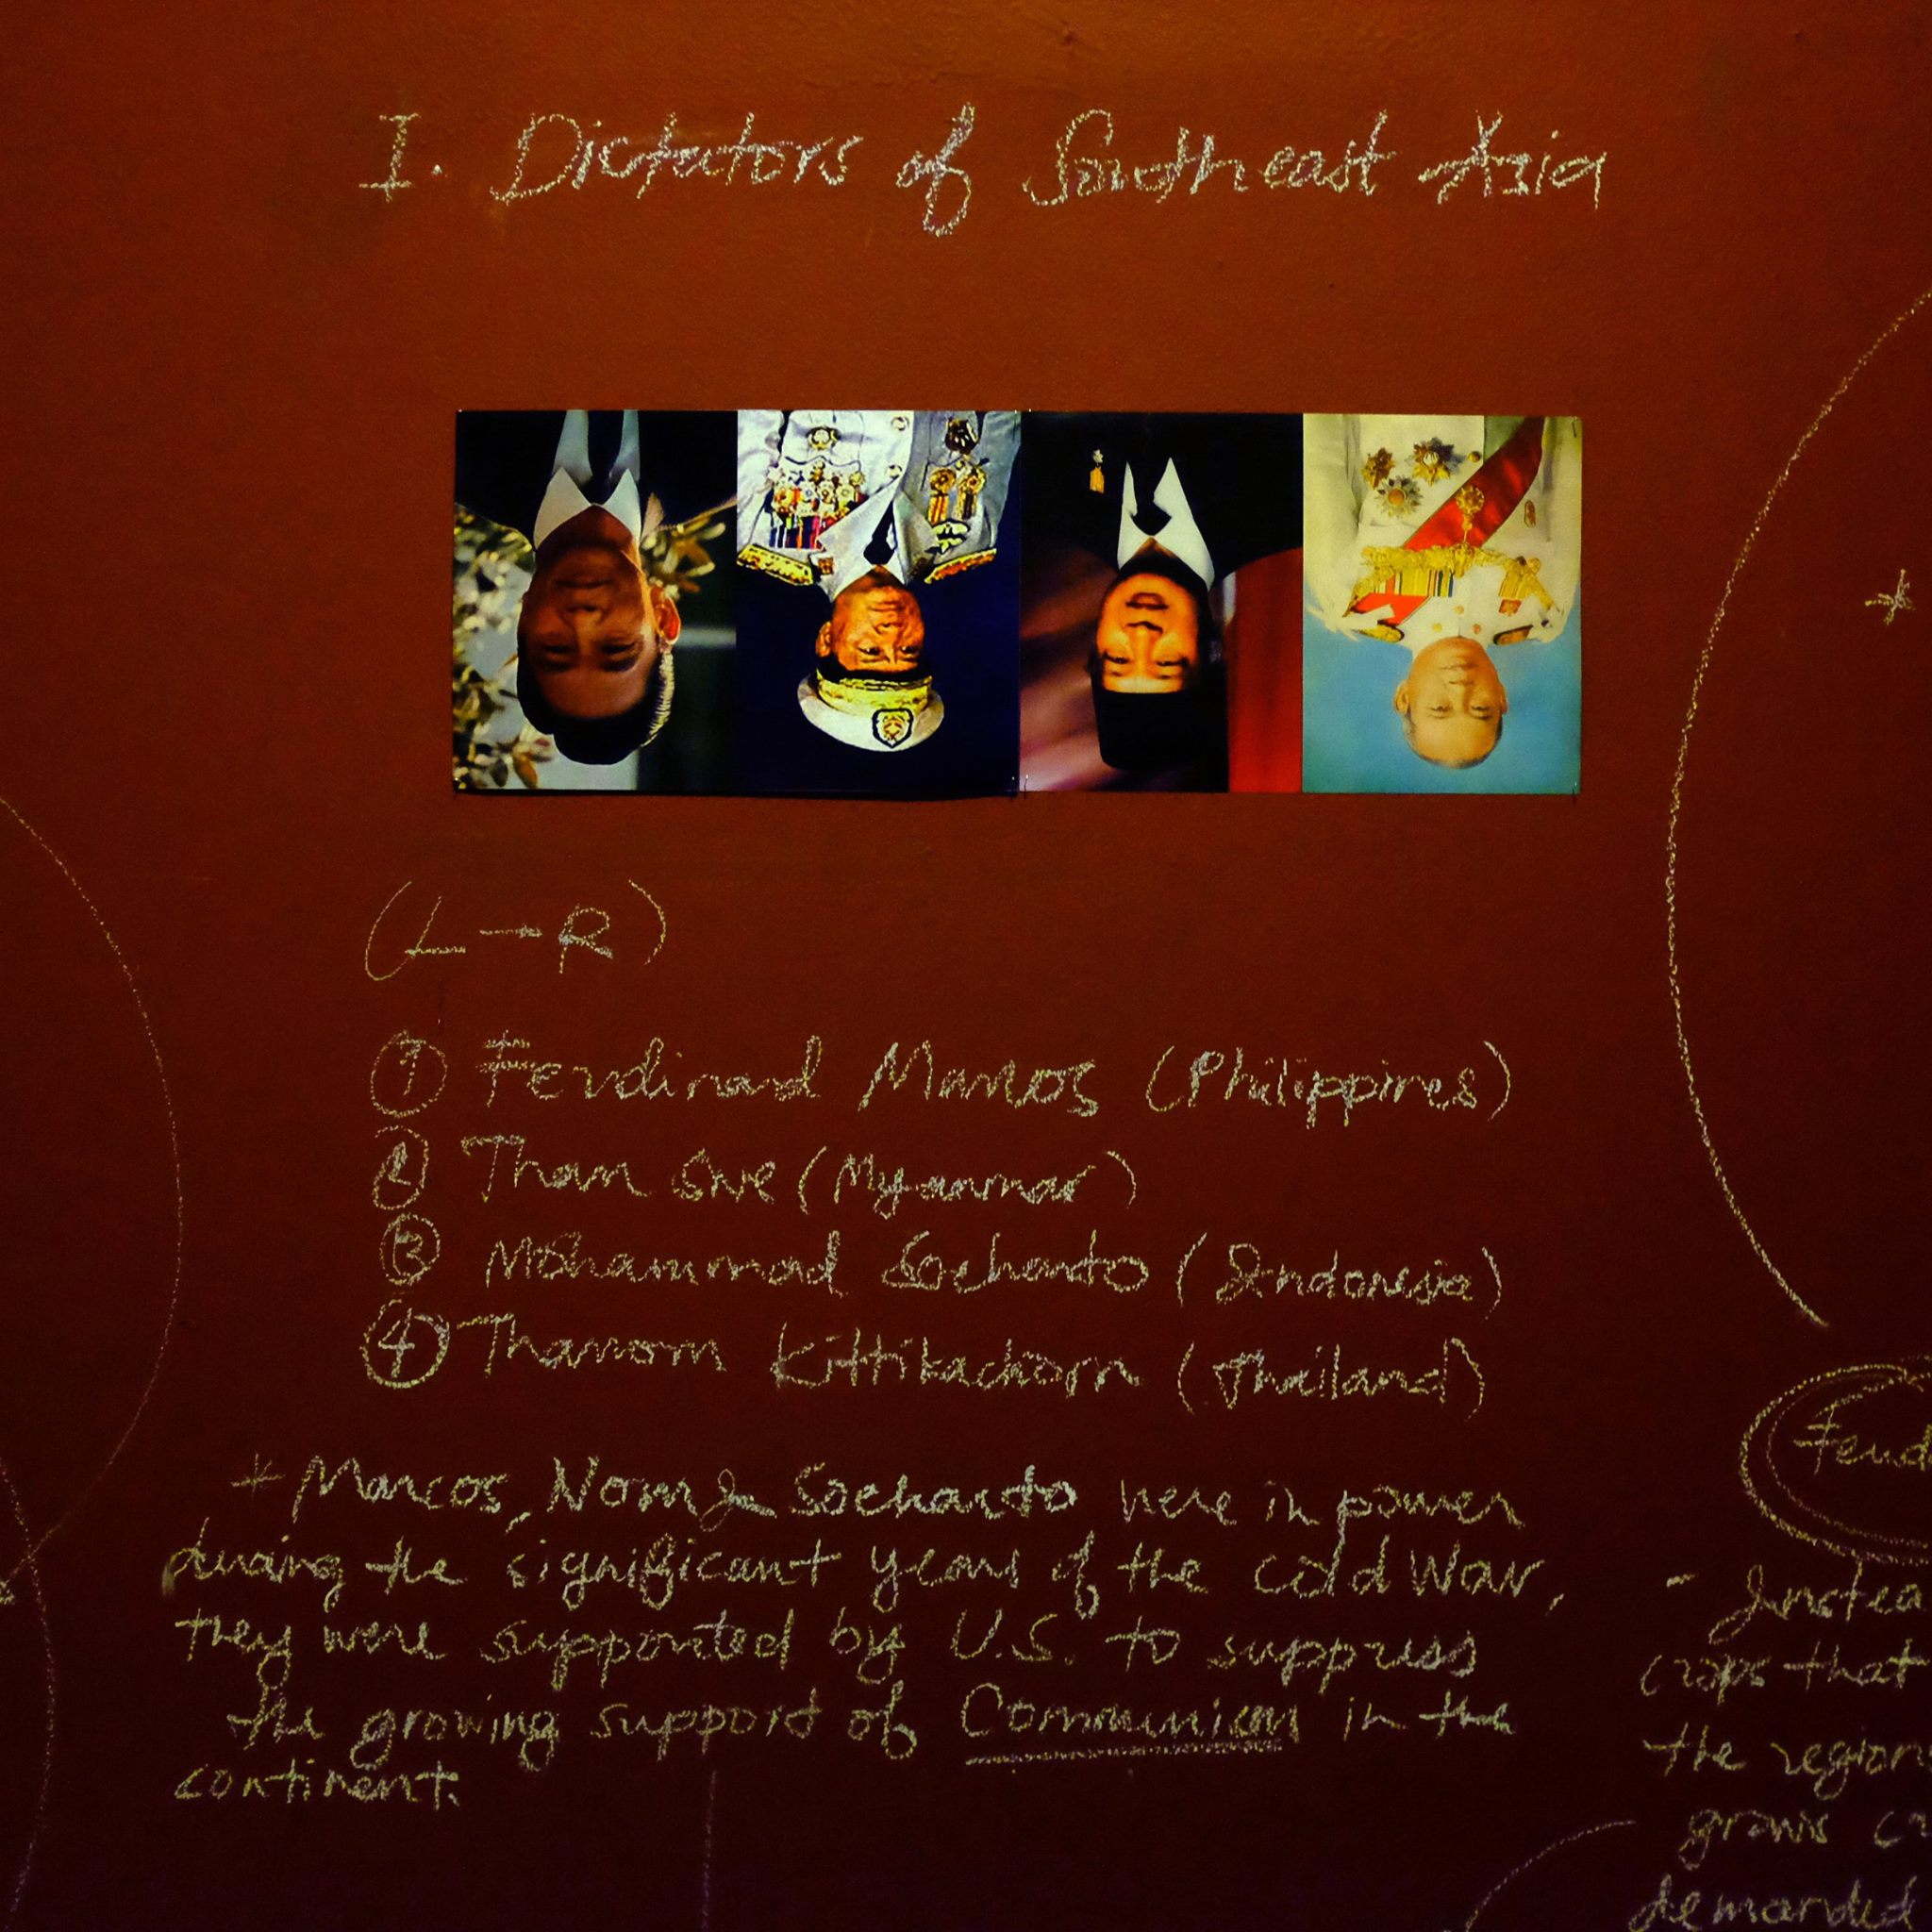 I. Dictators of Southeast Asia
(L → R)
① Ferdinand Marcos (Philippines)
② Than Swe (Myanmar)
③ Mohammad Soeharto (Indonesia)
④ Thanom Kittikachorn (Thailand)
* Marcos, Nom & Soeharto were in power
during the significant years of the cold War,
they were supported by U.S. to suppress
the growing support of Communism in the
continent.
*
Feud
- Instea
crops that
the region
grows cr
demanded